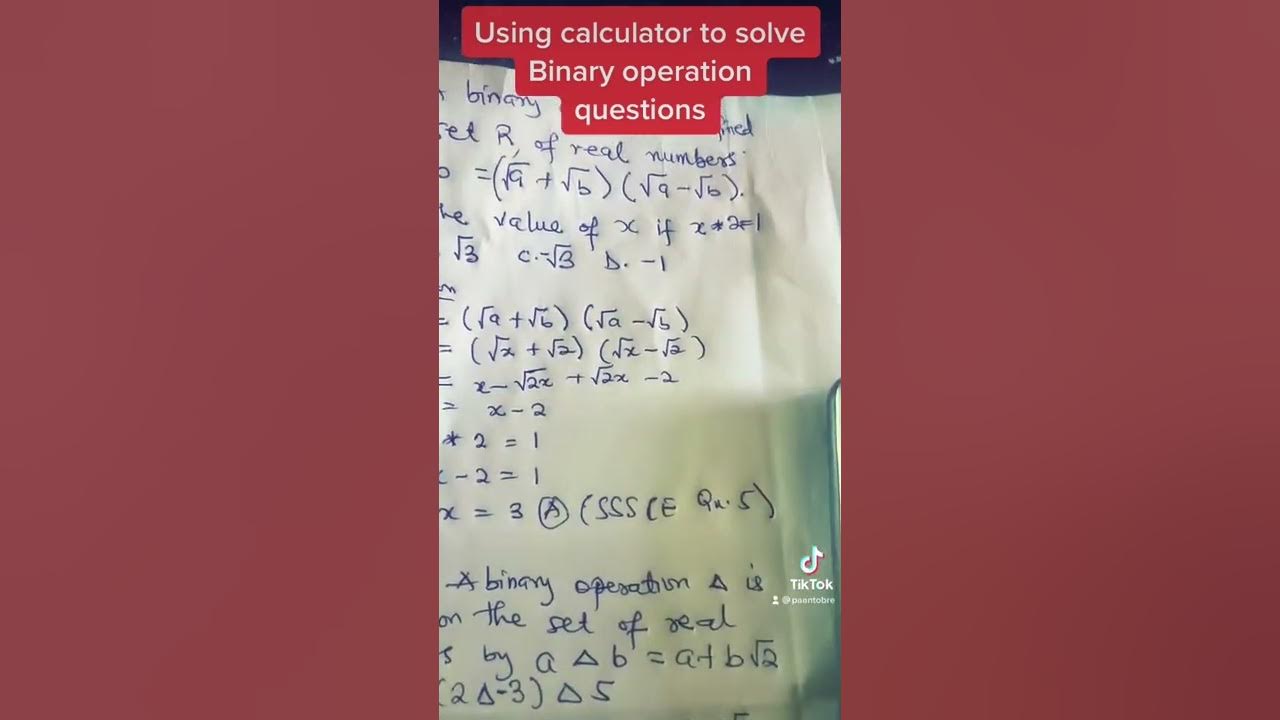 Using calculator to solve
Binary operation
questions
binary
set R, of real numbers.
= (√a + √b) (√a - √b).
the value of x if x * 2 = 1
√3 C. -√3 D. -1
= (√a + √b) (√a - √b)
= (√x + √2) (√x - √2)
= x - √2x + √2x - 2
= x - 2
* 2 = 1
x - 2 = 1
x = 3 (A) (SSSCE Qu. 5)
TikTok
@paantobre
A binary operation Δ is
on the set of real
s by a Δ b = a + b√2
(2 Δ -3) Δ 5